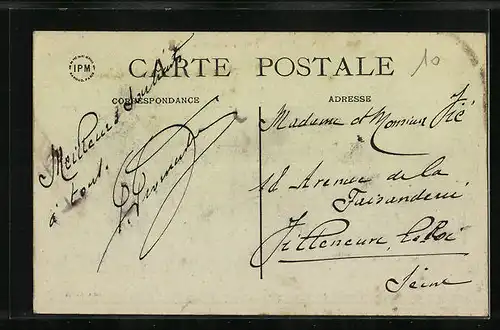 IPM
CARTE POSTALE
10
CORRESPONDANCE
ADRESSE
Meilleurs Souhaits
à tous.
Madame et Monsieur
18 Avenue de la
Faisanderie
Villeneuve le Roi
Seine